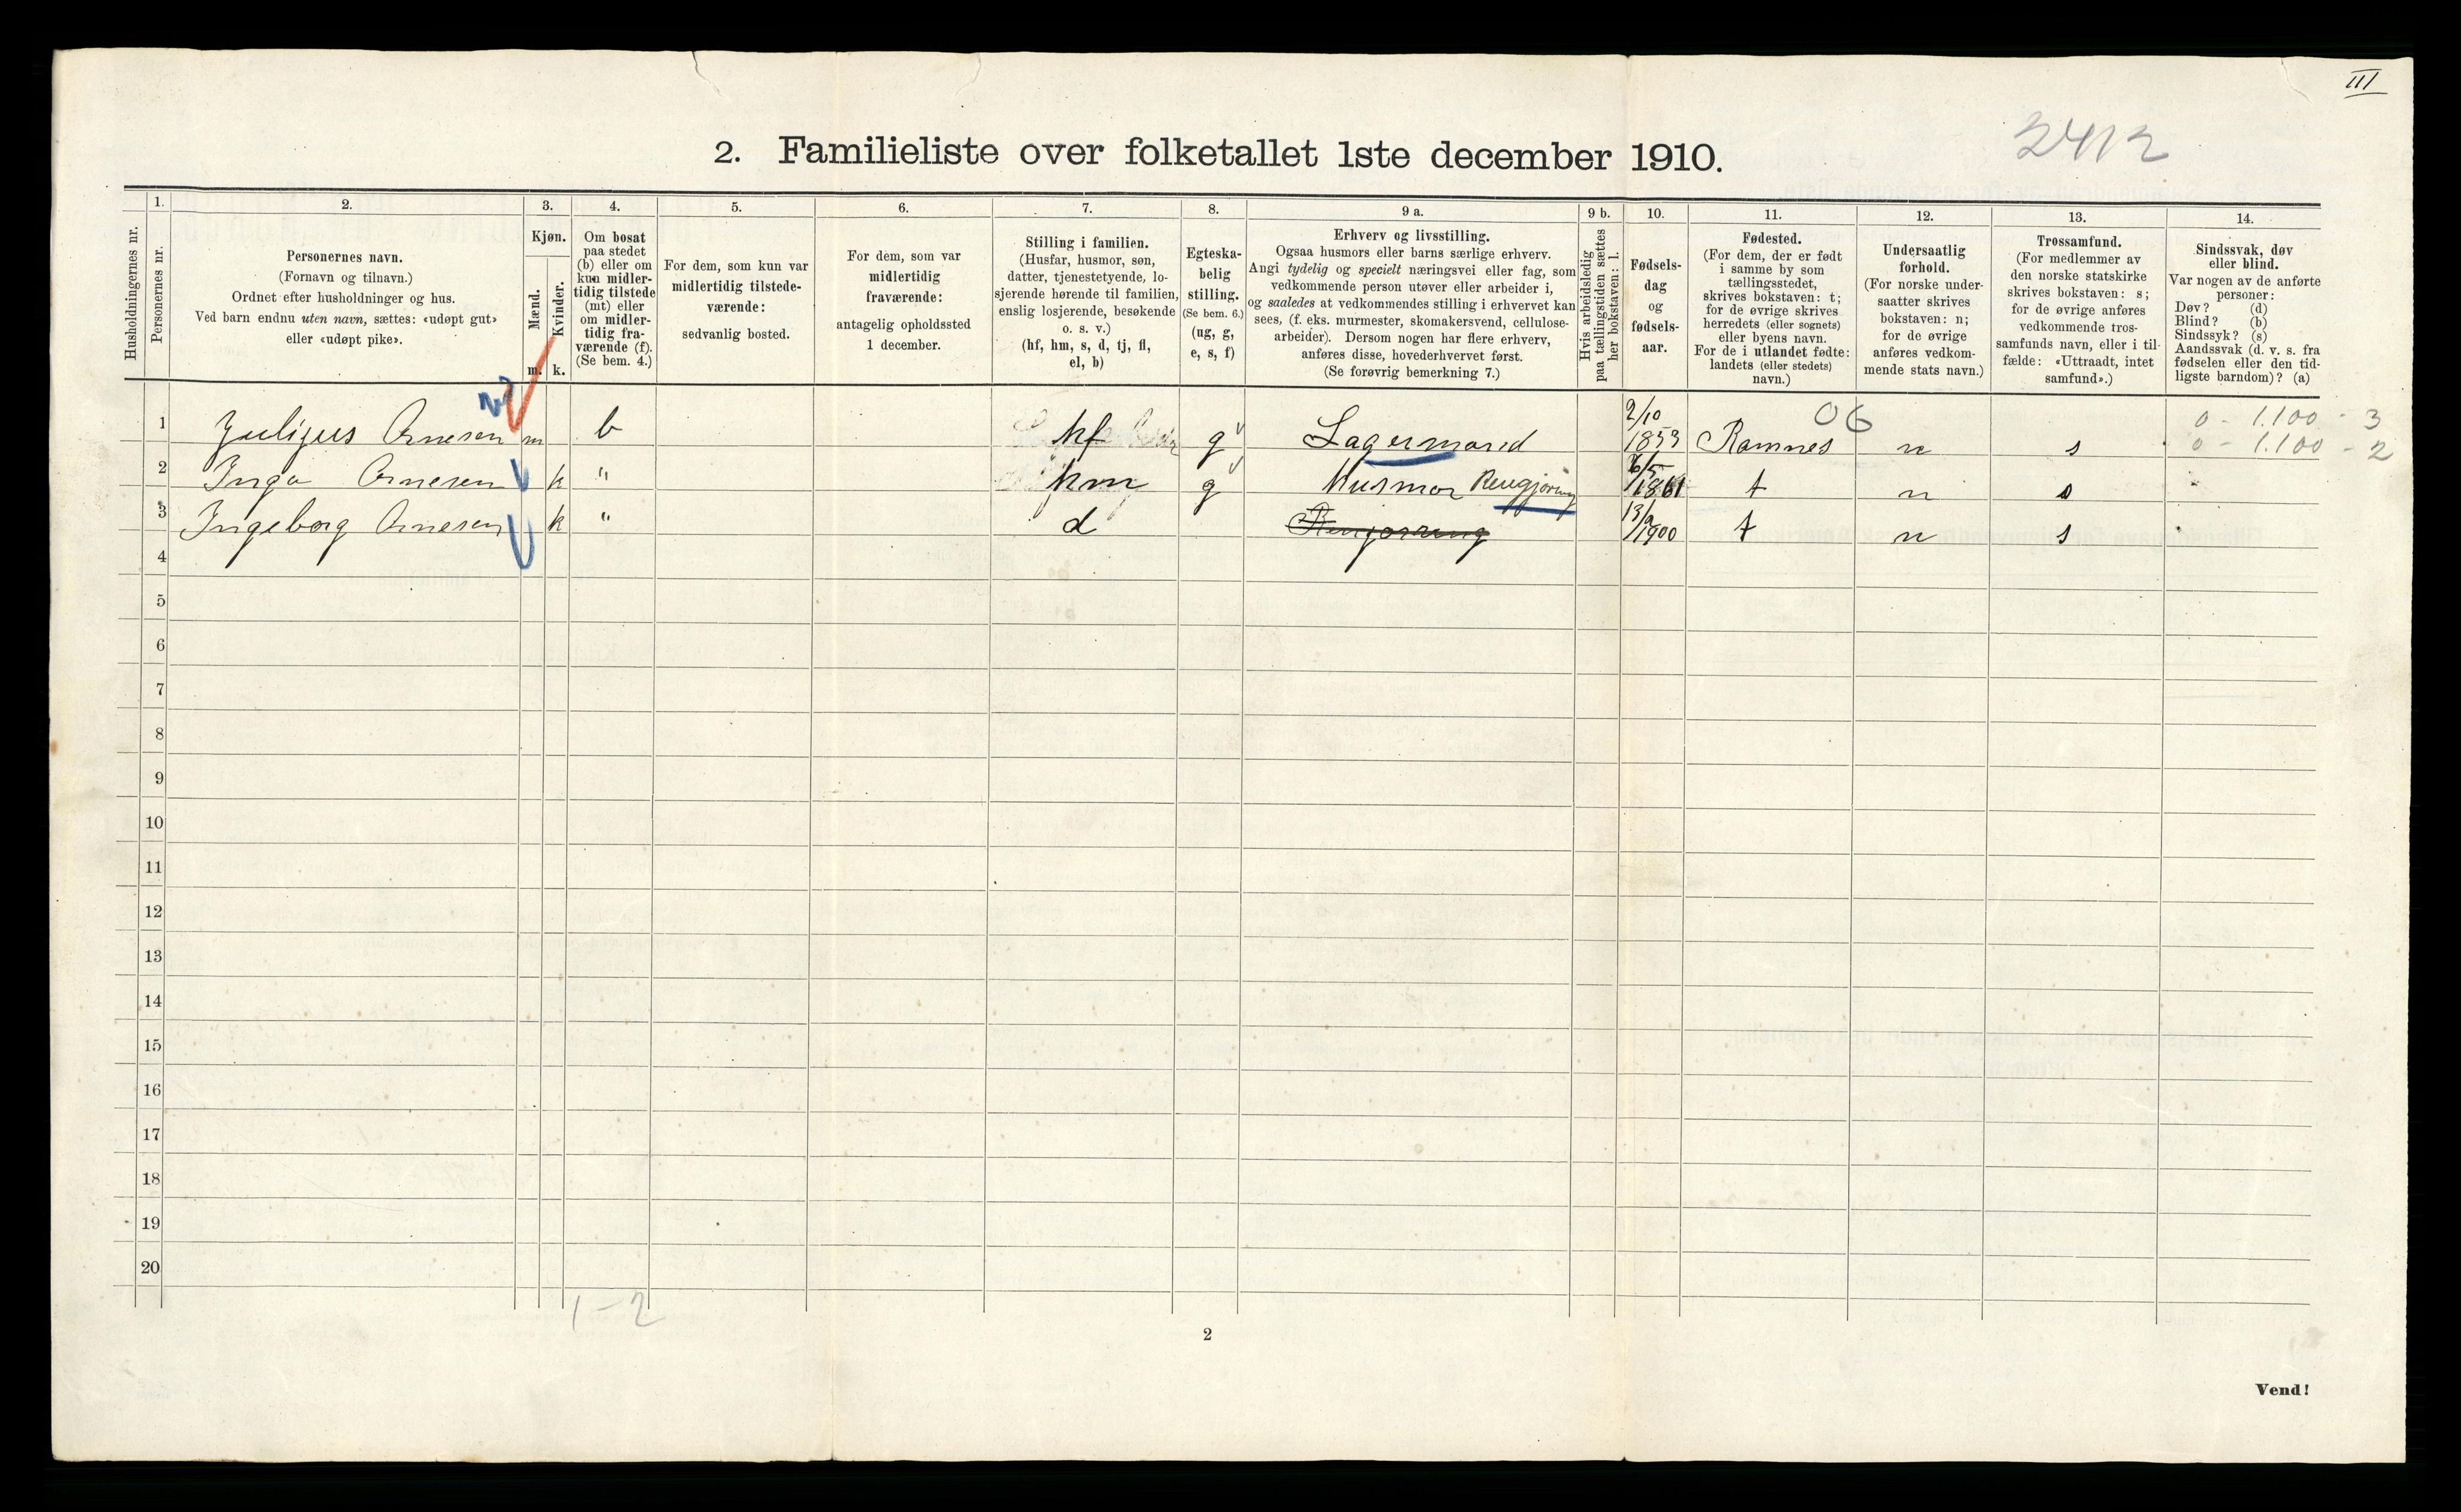 III
2412
2. Familieliste over folketallet 1ste december 1910.
Husholdningernes nr.
1.
Personernes nr.
2.
Personernes navn.
(Fornavn og tilnavn.)
Ordnet efter husholdninger og hus.
Ved barn endnu uten navn, sættes: «udøpt gut»
eller «udøpt pike».
3.
Kjøn.
Mænd.
Kvinder.
m. k.
4.
Om bosat
paa stedet
(b) eller om
kun midler-
tidig tilstede
(mt) eller
om midler-
tidig fra-
værende (f).
(Se bem. 4.)
5.
For dem, som kun var
midlertidig tilstede-
værende:
sedvanlig bosted.
6.
For dem, som var
midlertidig
fraværende:
antagelig opholdssted
1 december.
7.
Stilling i familien.
(Husfar, husmor, søn,
datter, tjenestetyende, lo-
sjerende hørende til familien,
enslig losjerende, besøkende
o. s. v.)
(hf, hm, s, d, tj, fl,
el, b)
8.
Egteska-
belig
stilling.
(Se bem. 6.)
(ug, g,
e, s, f)
9 a.
Erhverv og livsstilling.
Ogsaa husmors eller barns særlige erhverv.
Angi tydelig og specielt næringsvei eller fag, som
vedkommende person utøver eller arbeider i,
og saaledes at vedkommendes stilling i erhvervet kan
sees, (f. eks. murmester, skomakersvend, cellulose-
arbeider). Dersom nogen har flere erhverv,
anføres disse, hovederhvervet først.
(Se forøvrig bemerkning 7.)
9 b.
Hvis arbeidsledig
paa tællingstiden sættes
her bokstaven: l.
10.
Fødsels-
dag
og
fødsels-
aar.
11.
Fødested.
(For dem, der er født
i samme by som
tællingsstedet,
skrives bokstaven: t;
for de øvrige skrives
herredets (eller sognets)
eller byens navn.
For de i utlandet fødte:
landets (eller stedets)
navn.)
12.
Undersaatlig
forhold.
(For norske under-
saatter skrives
bokstaven: n;
for de øvrige
anføres vedkom-
mende stats navn.)
13.
Trossamfund.
(For medlemmer av
den norske statskirke
skrives bokstaven: s;
for de øvrige anføres
vedkommende tros-
samfunds navn, eller i til-
fælde: «Uttraadt, intet
samfund».)
14.
Sindssvak, døv
eller blind.
Var nogen av de anførte
personer:
Døv? (d)
Blind? (b)
Sindssyk? (s)
Aandssvak (d. v. s. fra
fødselen eller den tid-
ligste barndom)? (a)
06
0 - 1.100 - 3
0 - 1.100 - 2
1 Juligus Arnesen m b hf g Lagermand 2/10 1853 Ramnes n s
2 Inga Arnesen k " hm g Husmor Rengjøring 1861 t n s
3 Ingeborg Arnesen k " d Rengjøring 13/9 1900 t n s
4
5
6
7
8
9
10
11
12
13
14
15
16
17
18
19
20
1 - 2
2
Vend!